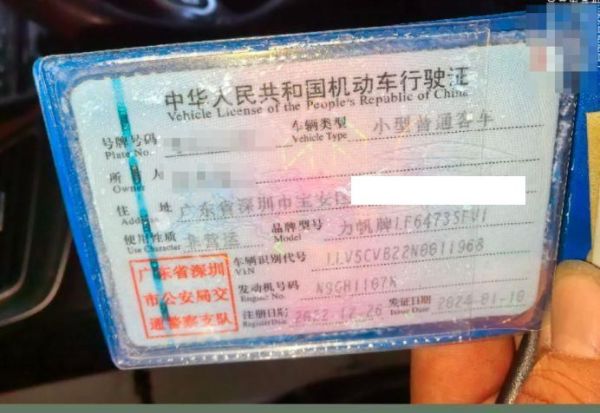 中华人民共和国机动车行驶证
Vehicle License of the People's Republic of China
号牌号码 车辆类型 小型普通客车
Plate No. Vehicle Type
所有人
Owner
住址 广东省深圳市宝安区
Address
使用性质 非营运 品牌型号 力帆牌LF6473SEV1
Use Character Model
广东省深圳
市公安局交
通警察支队
车辆识别代号 LLV5CVB22N0011968
VIN
发动机号码 N9GH1107K
Engine No.
注册日期 2022-12-26 发证日期 2024-01-10
Register Date Issue Date